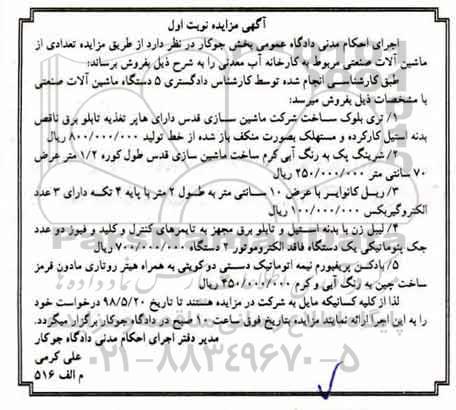 آگهی مزایده نوبت اول
اجرای احکام مدنی دادگاه عمومی بخش جوکار در نظر دارد از طریق مزایده تعدادی از
ماشین آلات صنعتی مربوط به کارخانه آب معدنی را به شرح ذیل بفروش برساند:
طبق کارشناسی انجام شده توسط کارشناس دادگستری ۵ دستگاه ماشین آلات صنعتی
با مشخصات ذیل بفروش میرسد:
۱/ تری بلوک ساخت شرکت ماشین سازی قدس دارای هاپر تغذیه تابلو برق ناقص
بدنه استیل کارکرده و مستهلک بصورت منکف باز شده از خط تولید ۸۰۰/۰۰۰/۰۰۰ ریال
۲/ شرینگ پک به رنگ آبی کرم ساخت ماشین سازی قدس طول کوره ۱/۲ متر عرض
۷۰ سانتی متر ۲۵۰/۰۰۰/۰۰۰ ریال
۳/ ریل کانوایر با عرض ۱۰ سانتی متر به طول ۲ متر با پایه ۴ تکه دارای ۳ عدد
الکتروگیربکس ۱۰۰/۰۰۰/۰۰۰ ریال
۴/ لیبل زن با بدنه استیل و تابلو برق مجهز به تایمرهای کنترل و کلید و فیوز دو عدد
جک پنوماتیکی یک دستگاه فاقد الکتروموتور ۲ دستگاه ۷۰۰/۰۰۰/۰۰۰ ریال
۵/ بادکن پریفیورم نیمه اتوماتیک دستی دو کویتی به همراه هیتر روتاری مادون قرمز
ساخت چین به رنگ آبی و کرم ۴۵۰/۰۰۰/۰۰۰ ریال
لذا از کلیه کسانیکه مایل به شرکت در مزایده هستند تا تاریخ ۹۸/۵/۲۰ درخواست خود
را به این اجرا ارائه نمایند مزایده بتاریخ فوق ساعت ۱۰ صبح در دادگاه جوکار برگزار میگردد.
مدیر دفتر اجرای احکام مدنی دادگاه جوکار
علی کرمی
م الف ۵۱۶
۰۲۱-۸۸۳۴۹۶۷۰-۵